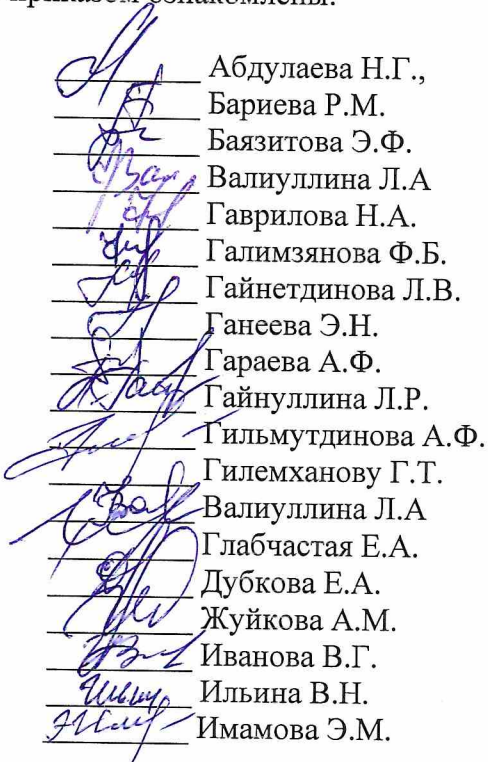 приказом ознакомлены:
Абдулаева Н.Г.,
Бариева Р.М.
Баязитова Э.Ф.
Валиуллина Л.А
Гаврилова Н.А.
Галимзянова Ф.Б.
Гайнетдинова Л.В.
Ганеева Э.Н.
Гараева А.Ф.
Гайнуллина Л.Р.
Гильмутдинова А.Ф.
Гилемханову Г.Т.
Валиуллина Л.А
Глабчастая Е.А.
Дубкова Е.А.
Жуйкова А.М.
Иванова В.Г.
Ильина В.Н.
Имамова Э.М.